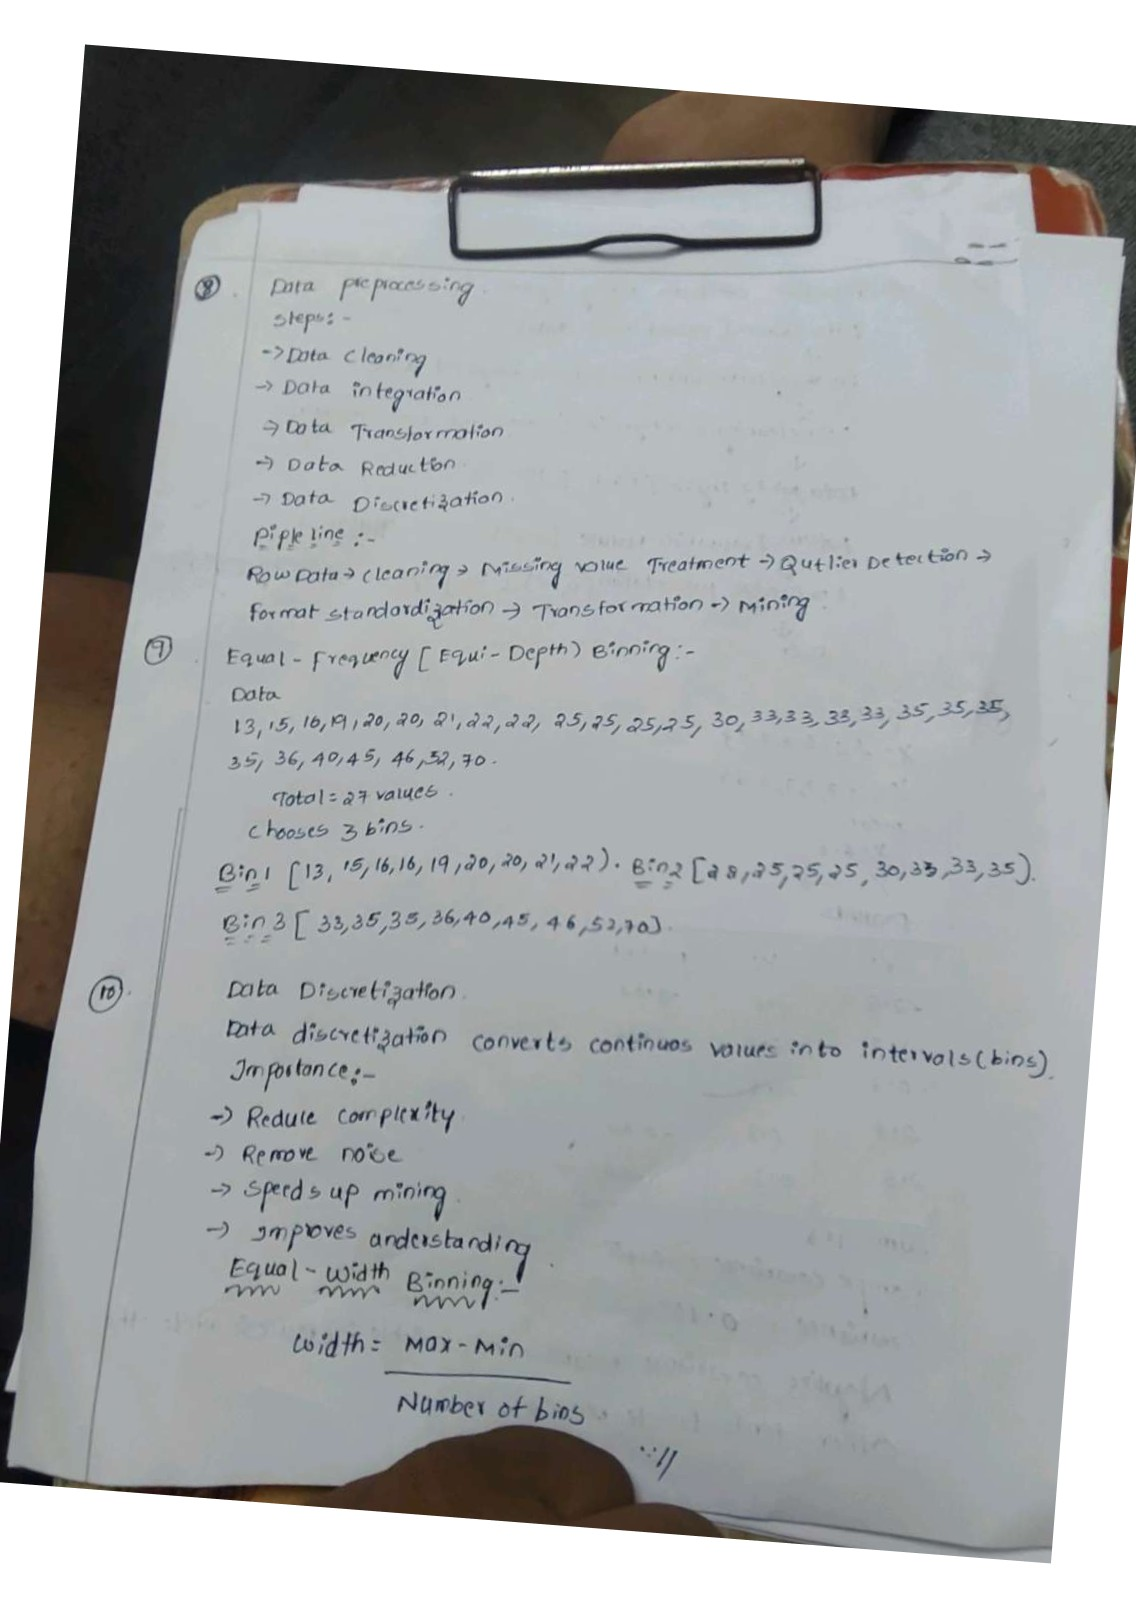 8. Data preprocessing.
Steps:-
-> Data Cleaning
-> Data integration
-> Data Transformation
-> Data Reduction.
-> Data Discretization.
Piple line :-
Raw Data -> cleaning -> Missing value Treatment -> Outlier Detection ->
format standardization -> Transformation -> Mining.
9. Equal-Frequency [Equi-Depth) Binning:-
Data
13, 15, 16, 19, 20, 20, 21, 22, 22, 25, 25, 25, 25, 30, 33, 33, 33, 33, 35, 35, 35,
35, 36, 40, 45, 46, 52, 70.
Total = 27 values.
Chooses 3 bins.
Bin 1 [13, 15, 16, 16, 19, 20, 20, 21, 22). Bin 2 [28, 25, 25, 25, 30, 33, 33, 35).
Bin 3 [33, 35, 35, 36, 40, 45, 46, 52, 70).
10. Data Discretization.
Data discretization converts continuos values into intervals (bins).
Importance:-
-> Reduce complexity.
-> Remove noise
-> Speeds up mining.
-> Improves anderstanding.
Equal-Width Binning:-
Width = Max - Min
Number of bins